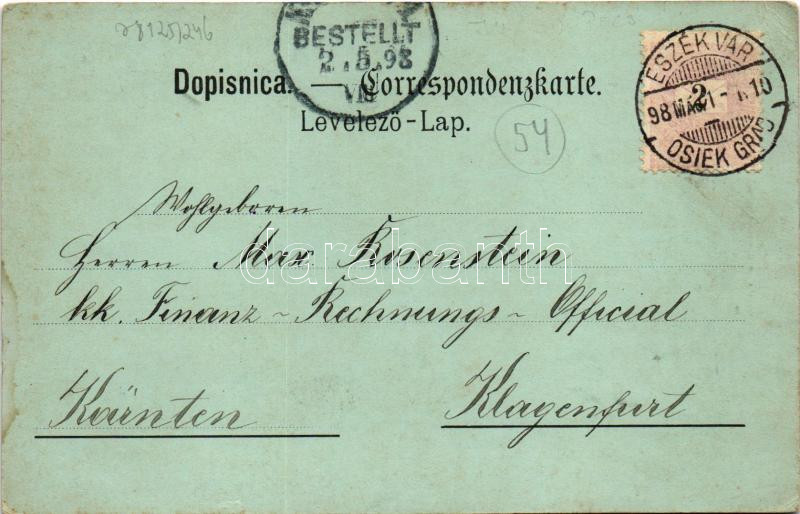 BESTELLT
2.5.98
VII
Dopisnica. — Correspondenzkarte.
Levelező-Lap.
54
ESZÉK VÁR
2
98 MÁJ 1
OSIEK GRAD
Wohlgeboren
Herren Max Rosenstein
kk. Finanz-Rechnungs-Official
Kärnten Klagenfurt
darabanth